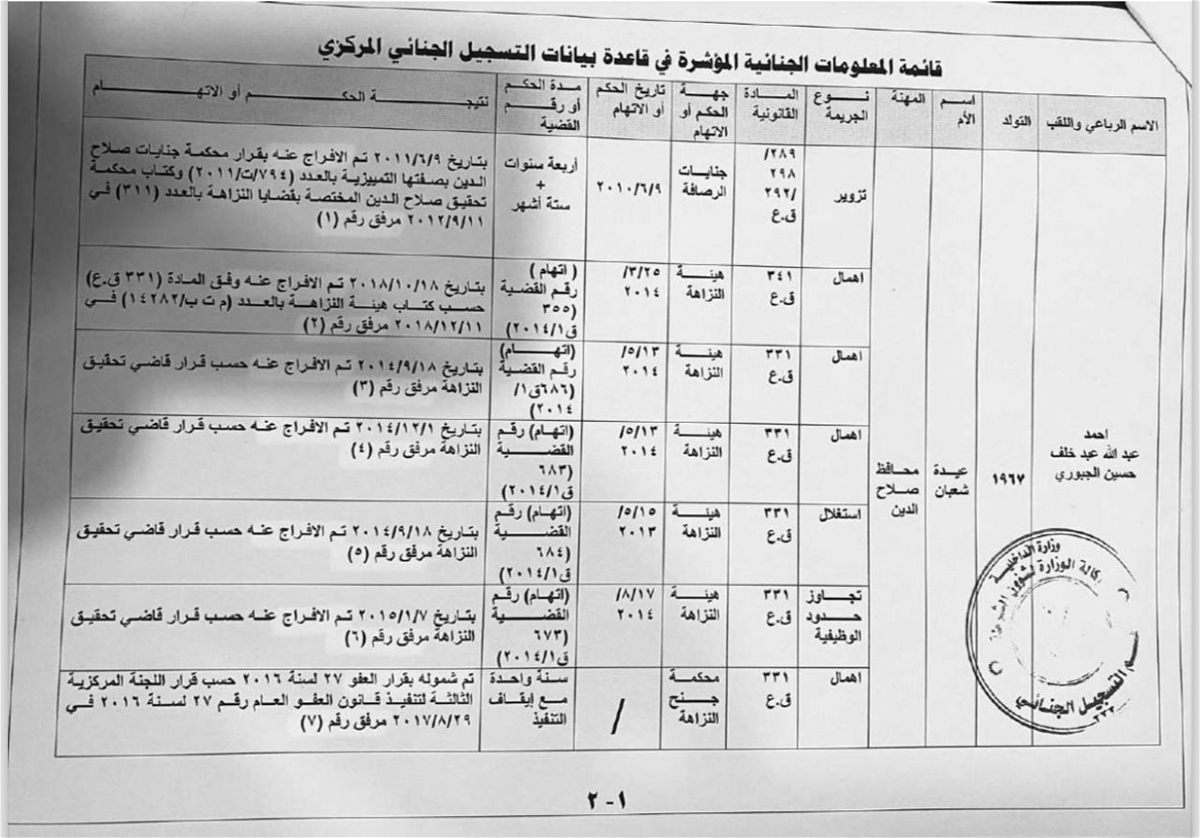 قائمة المعلومات الجنائية المؤشرة في قاعدة بيانات التسجيل الجنائي المركزي
الاسم الرباعي واللقب
التولد
اسم
الأم
المهنة
نوع
الجريمة
المادة
القانونية
جهة
الحكم أو
الاتهام
تاريخ الحكم
أو الاتهام
مدة الحكم
أو رقم
القضية
نتيجة الحكم أو الاتهام
احمد
عبد الله عبد خلف
حسين الجبوري
١٩٦٧
عيدة
شعبان
محافظ
صلاح
الدين
تزوير
٢٨٩/
٢٩٨
٢٩٢/
ق.ع
جنايات
الرصافة
٢٠١٠/٦/٩
أربعة سنوات
+
ستة أشهر
بتاريخ ٢٠١١/٦/٩ تم الافراج عنه بقرار محكمة جنايات صلاح
الدين بصفتها التمييزية بالعدد (٧٩٤/ت/٢٠١١) وكتاب محكمة
تحقيق صلاح الدين المختصة بقضايا النزاهة بالعدد (٣١١) في
٢٠١٢/٩/١١ مرفق رقم (١)
اهمال
٣٤١
ق.ع
هيئة
النزاهة
٣/٢٥/
٢٠١٤
( اتهام )
رقم القضية
(٣٥٥
ق٢٠١٤/١)
بتاريخ ٢٠١٨/١٠/١٨ تم الافراج عنه وفق المادة (٣٣١ ق.ع)
حسب كتاب هيئة النزاهة بالعدد (م ت ب/١٤٢٨٢) في
٢٠١٨/١٢/١١ مرفق رقم (٢)
اهمال
٣٣١
ق.ع
هيئة
النزاهة
٥/١٣/
٢٠١٤
(اتهام)
رقم القضية
(٦٨٦ق١/
٢٠١٤)
بتاريخ ٢٠١٤/٩/١٨ تم الافراج عنه حسب قرار قاضي تحقيق
النزاهة مرفق رقم (٣)
اهمال
٣٣١
ق.ع
هيئة
النزاهة
٥/١٣/
٢٠١٤
(اتهام) رقم
القضية
(٦٨٣
ق٢٠١٤/١)
بتاريخ ٢٠١٤/١٢/١ تم الافراج عنه حسب قرار قاضي تحقيق
النزاهة مرفق رقم (٤)
استغلال
٣٣١
ق.ع
هيئة
النزاهة
٥/١٥/
٢٠١٣
(اتهام) رقم
القضية
(٦٨٤
ق٢٠١٤/١)
بتاريخ ٢٠١٤/٩/١٨ تم الافراج عنه حسب قرار قاضي تحقيق
النزاهة مرفق رقم (٥)
تجاوز
حدود
الوظيفية
٣٣١
ق.ع
هيئة
النزاهة
٨/١٧/
٢٠١٤
(اتهام) رقم
القضية
(٦٧٣
ق٢٠١٤/١)
بتاريخ ٢٠١٥/١/٧ تم الافراج عنه حسب قرار قاضي تحقيق
النزاهة مرفق رقم (٦)
اهمال
٣٣١
ق.ع
محكمة
جنح
النزاهة
/
سنة واحدة
مع إيقاف
التنفيذ
تم شموله بقرار العفو ٢٧ لسنة ٢٠١٦ حسب قرار اللجنة المركزية
الثالثة لتنفيذ قانون العفو العام رقم ٢٧ لسنة ٢٠١٦ في
٢٠١٧/٨/٢٩ مرفق رقم (٧)
وزارة الداخلية
وكالة الوزارة لشؤون
التسجيل الجنائي
١-٢